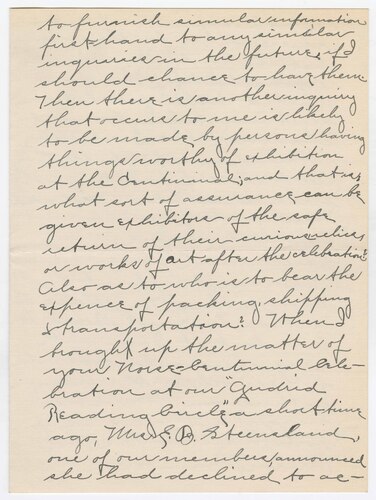 to furnish simular information
first hand to any simular
inquiries in the future, if I
should chance to have them.
Then there is another inquiry
that occurs to me is likely
to be made by persons having
things worthy of exhibition
at the Centinnial, and that is,
what sort of assurance can be
given exhibitors of the safe
return of their curious, relics,
or works of art after the celebration?
Also as to who is to bear the
expence of packing, shipping
& transportation? When I
brought up the matter of
your Norse-Centennial Cele-
bration at our "Gudrid
Reading Circle" a short time
ago, Mrs. E. B. Steensland,
one of our members announced
she had declined to ac-